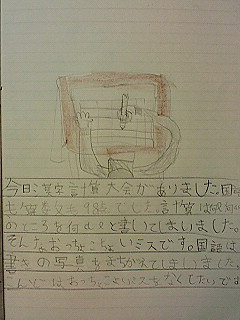 今日、漢字計算大会がありました。国
も算数も98点でした。計算は
のところを何dlと書いてしまいました。
そんなおっちょこちょいミスです。国語は
書きの写真をまちがえてしまいました。
こんどはおっちょこちょいミスをなくしたいです